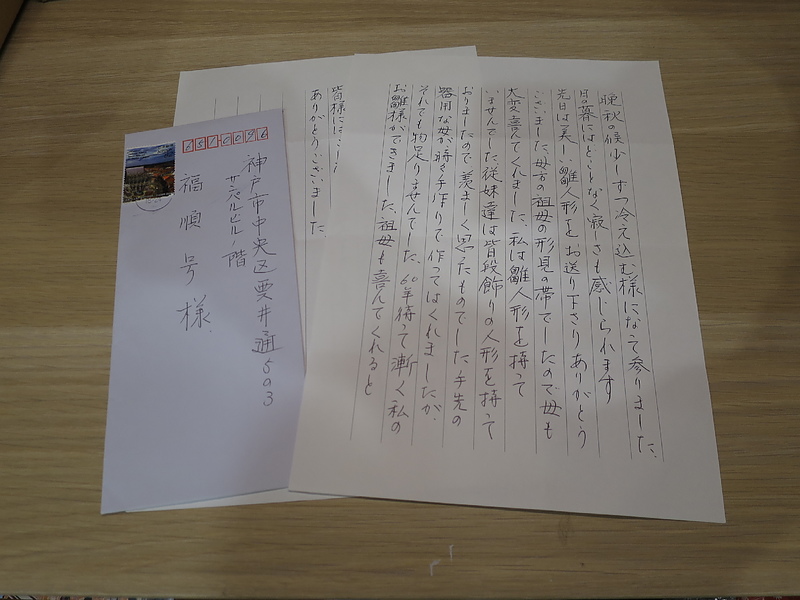 晩秋の候少しずつ冷え込む様になって参りました、
日の暮にはどことなく寂しさも感じられます
先日は美しい雛人形をお送り下さりありがとう
ございました、母方の祖母の形見の帯でしたので母も
大変喜んでくれました、私は雛人形を持って
いませんでした従妹達は皆段飾りの人形を持って
おりましたので羨ましく思ったものでした手先の
器用な母が時々手作りで作ってはくれましたが、
それでも物足りませんでした、60年待って漸く私の
お雛様ができました、祖母も喜んでくれると
皆様に
ありがとうございました、
6510096
神戸市中央区雲井通5の3
サンパルビル1階
福順号様